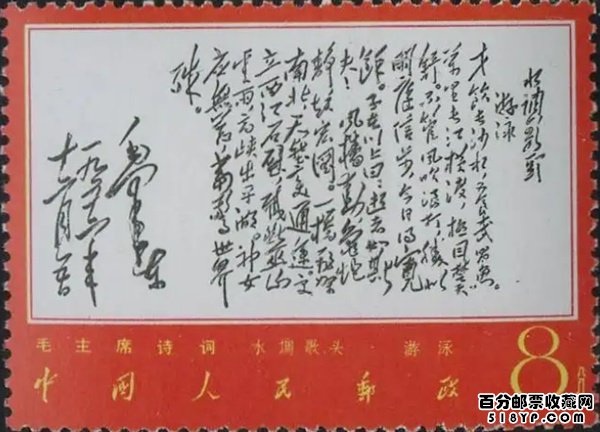 水调歌头
游泳
才饮长沙水，又食武昌鱼。
万里长江横渡，极目楚天
舒。不管风吹浪打，胜似
闲庭信步，今日得宽
馀。子在川上曰：逝者如斯
夫！风樯动，龟蛇
静，起宏图。一桥飞架
南北，天堑变通途。更
立西江石壁，截断巫山
云雨，高峡出平湖。神女
应无恙，当惊世界
殊。
毛泽东
一九五六年
十二月五日
毛主席诗词 水调歌头 游泳
中國人民郵政
8分
百分邮票收藏网
518YP.com